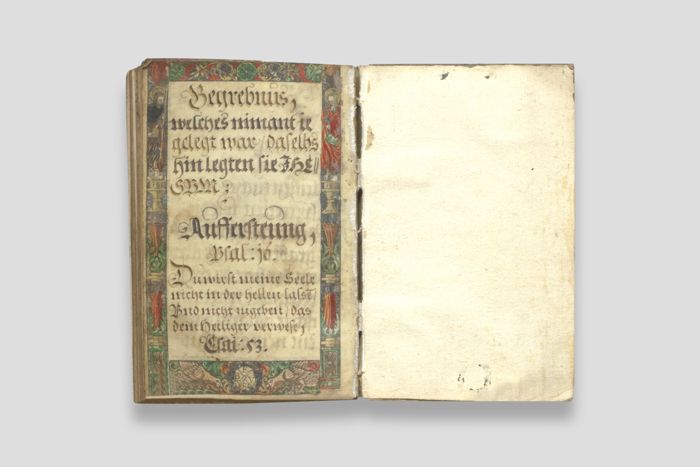 Begrebnus,
welches nimant ie
gelegt war / daselbs
hin legten sie JHE//
SVM;
Auffersteung,
Psal: 16.
Du wirst meine Seele
nicht in der hellen lassē/
Vnd nicht zugeben / das
dein Heiliger verwese,
Esai: 53.